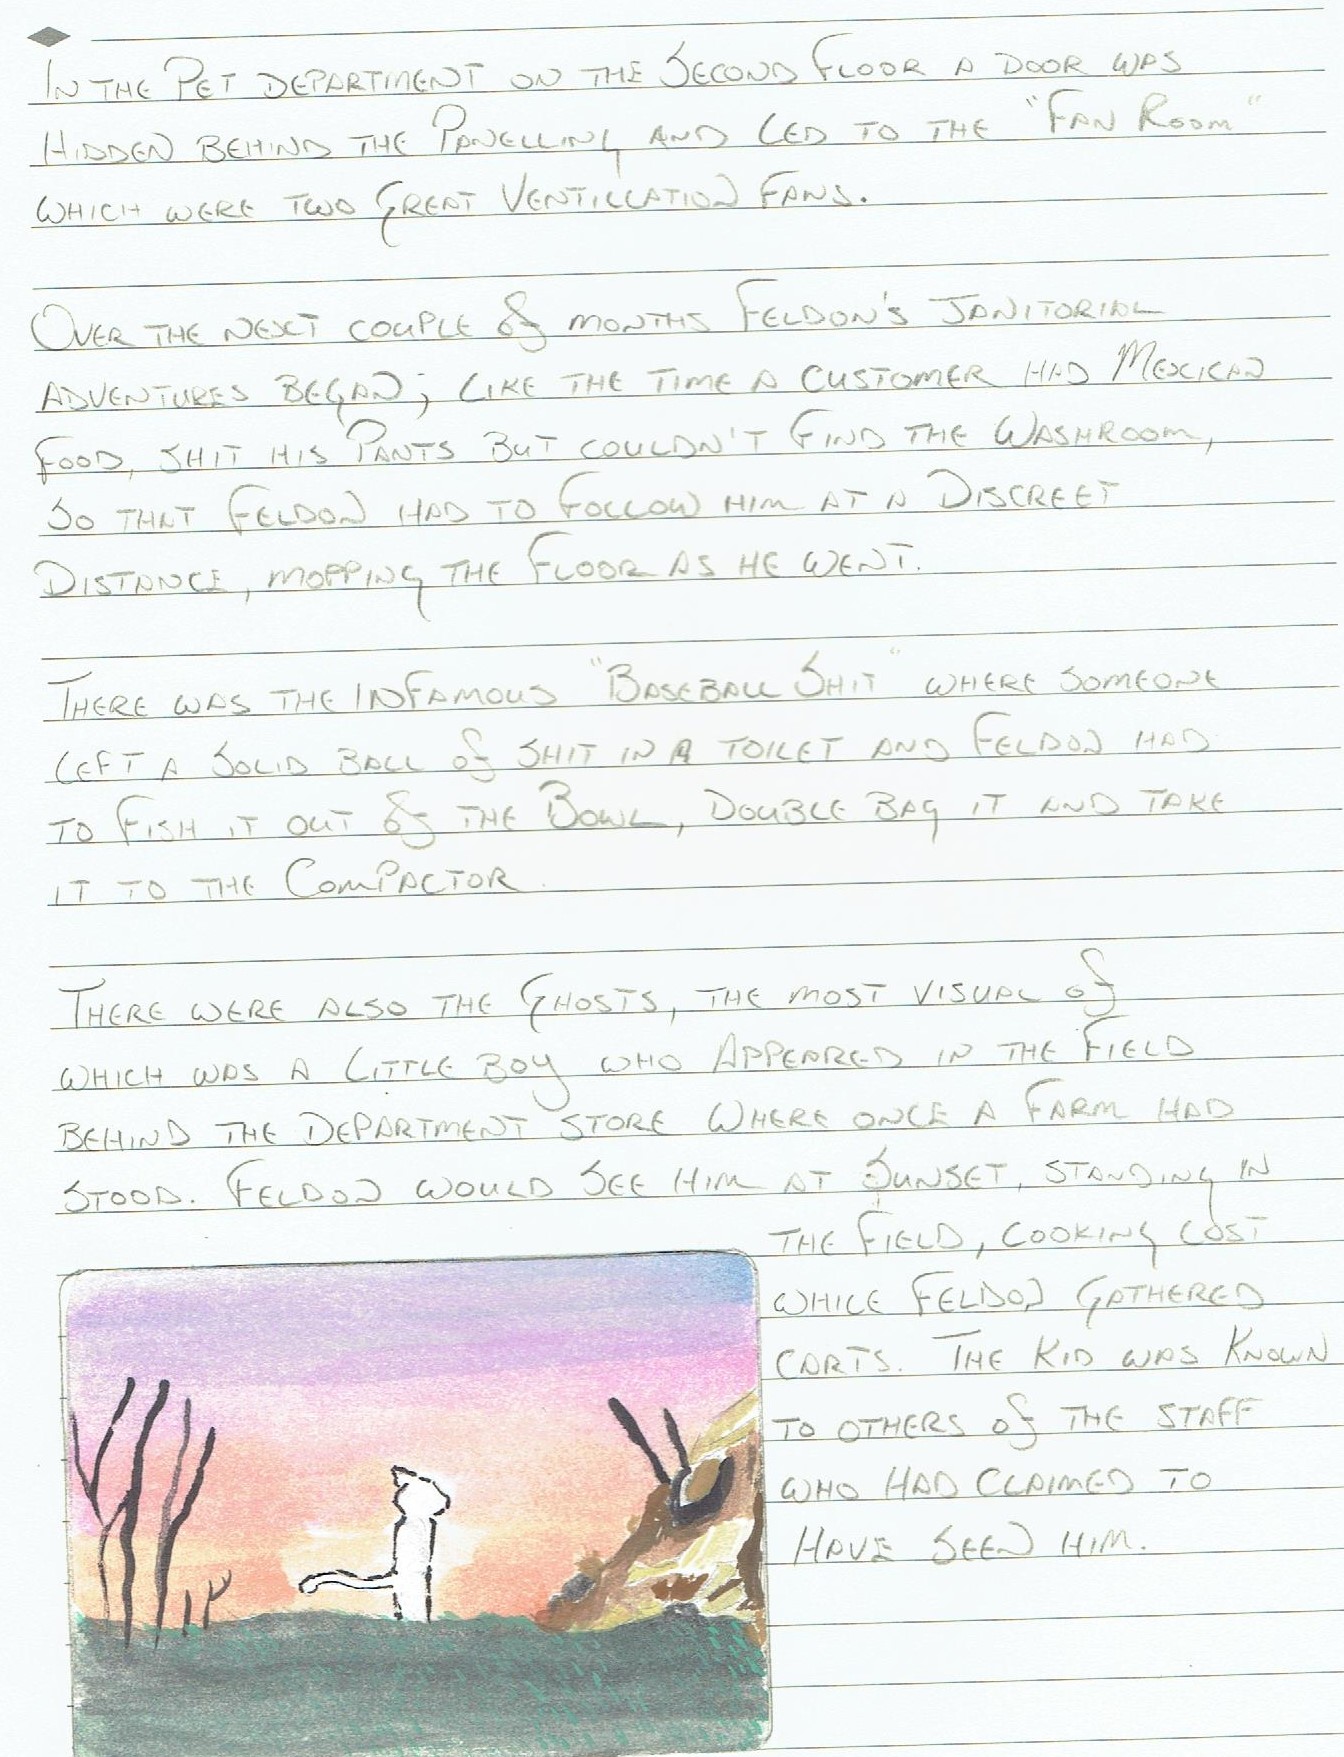 In the Pet department on the Second Floor a door was
Hidden behind the Panelling and led to the "Fan Room"
which were two Great Ventillation Fans.
Over the next couple of months Feldon's Janitorial
adventures began; like the time a customer had Mexican
food, shit his Pants but couldn't find the Washroom,
so that Feldon had to follow him at a Discreet
Distance, mopping the Floor as he went.
There was the infamous "Baseball Shit" where someone
left a solid ball of shit in a toilet and Feldon had
to fish it out of the Bowl, double bag it and take
it to the Compactor.
There were also the Ghosts, the most visual of
which was a little boy who appeared in the Field
behind the department store where once a Farm had
stood. Feldon would see him at Sunset, standing in
the Field, looking lost
while Feldon gathered
carts. The Kid was Known
to others of the staff
who had claimed to
Have seen him.